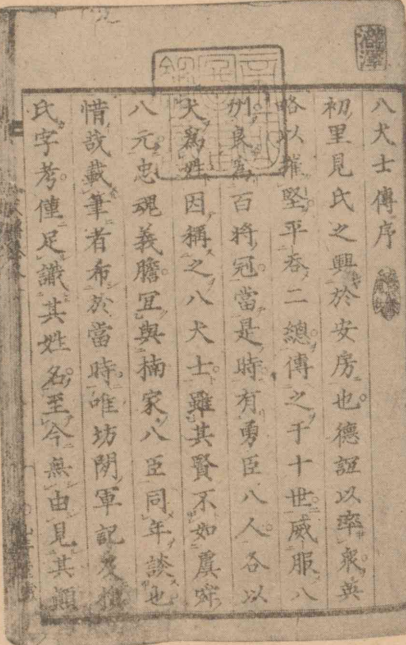 瀧澤
八犬士傳序
初里見氏之興於安房也德誼以率衆英
略以摧堅平呑二總傳之于十世威服八
州良爲百將冠當是時有勇臣八人各以
犬爲姓因稱之八犬士雖其賢不如虞舜
八元忠魂義膽宜與楠家八臣同年談也
惜哉載筆者希於當時唯坊間軍記及槇
氏字考僅足識其姓名至今無由見其顛